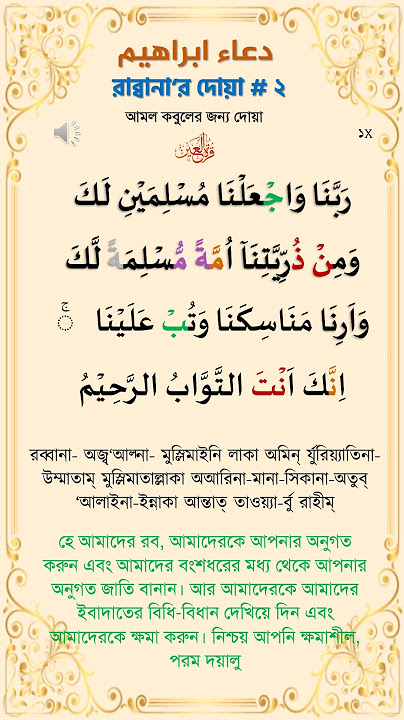 دعاء ابراهيم
রাব্বানা’র দোয়া # ২
আমল কবুলের জন্য দোয়া
১X
قرة العين
رَبَّنَا وَاجْعَلْنَا مُسْلِمَيْنِ لَكَ
وَمِنْ ذُرِّيَّتِنَآ اُمَّةً مُّسْلِمَةً لَّكَ
وَاَرِنَا مَنَاسِكَنَا وَتُبْ عَلَيْنَا ۚ
اِنَّكَ اَنْتَ التَّوَّابُ الرَّحِيْمُ
রব্বানা- অজ্ব‘আল্না- মুস্লিমাইনি লাকা অমিন্ র্যুরিয়্যাতিনা-
উম্মাতাম্ মুস্লিমাতাল্লাকা অআরিনা-মানা-সিকানা-অতুব্
‘আলাইনা-ইন্নাকা আন্তাত্ তাওয়্যা-র্বু রাহীম্
হে আমাদের রব, আমাদেরকে আপনার অনুগত
করুন এবং আমাদের বংশধরের মধ্য থেকে আপনার
অনুগত জাতি বানান। আর আমাদেরকে আমাদের
ইবাদাতের বিধি-বিধান দেখিয়ে দিন এবং
আমাদেরকে ক্ষমা করুন। নিশ্চয় আপনি ক্ষমাশীল,
পরম দয়ালু